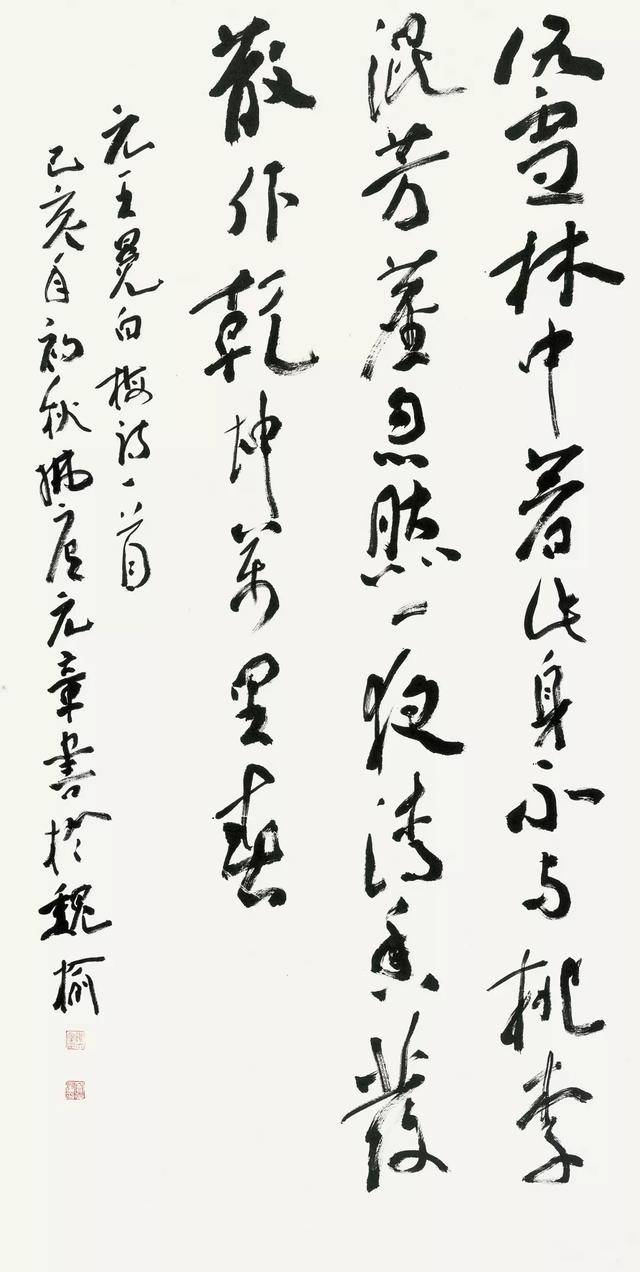 冰雪林中著此身不与桃李
混芳塵忽然一夜清香發
散作乾坤萬里春
元王冕白梅詩一首
己亥年初秋元章書於魏榆